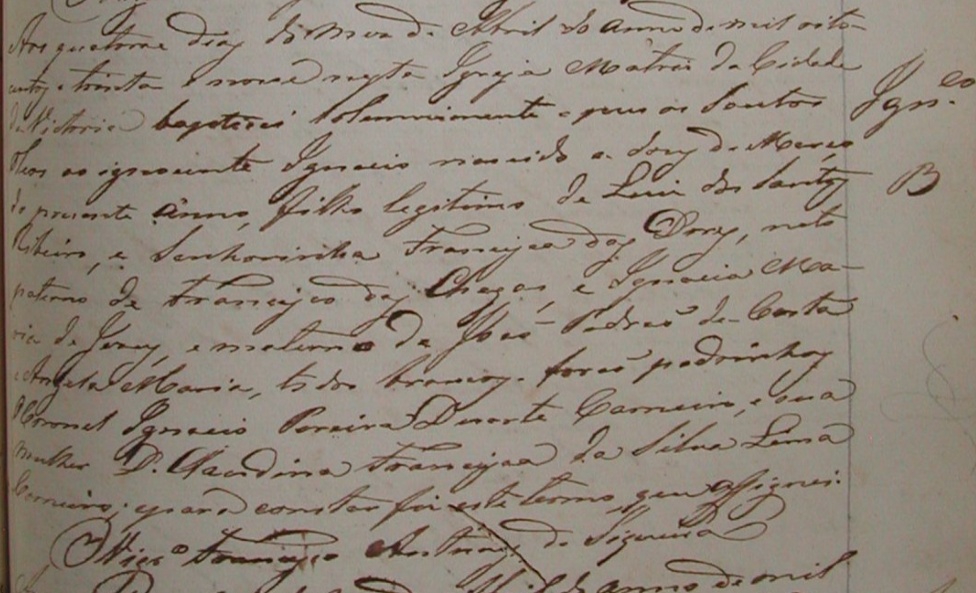 Aos quatorze dias do mez de Abril do anno de mil oito-
centos e trinta e nove nesta Igreja Matriz da Cidade
da Victoria baptizei solemnemente e puz os Santos
Oleos ao ignocente Ignacio nascido a doze de Março
do presente anno, filho legitimo de Luiz dos Santos
Ribeiro, e Senhorinha Francisca das Dores, neto
paterno de Francisco das Chagas, e Ignacia Ma-
ria de Jesus, e materno de João Pedrão da Costa
e Angela Maria, todos brancos. forão padrinhos
O Coronel Ignacio Pereira Duarte Carneiro, e sua
mulher D. Claudina Francisca da Silva Lima
Carneiro. e para constar fiz este termo que assignei.
O Vigr.º Francisco Antunes de Siqueira
Abril do anno de mil
Ign.co
B